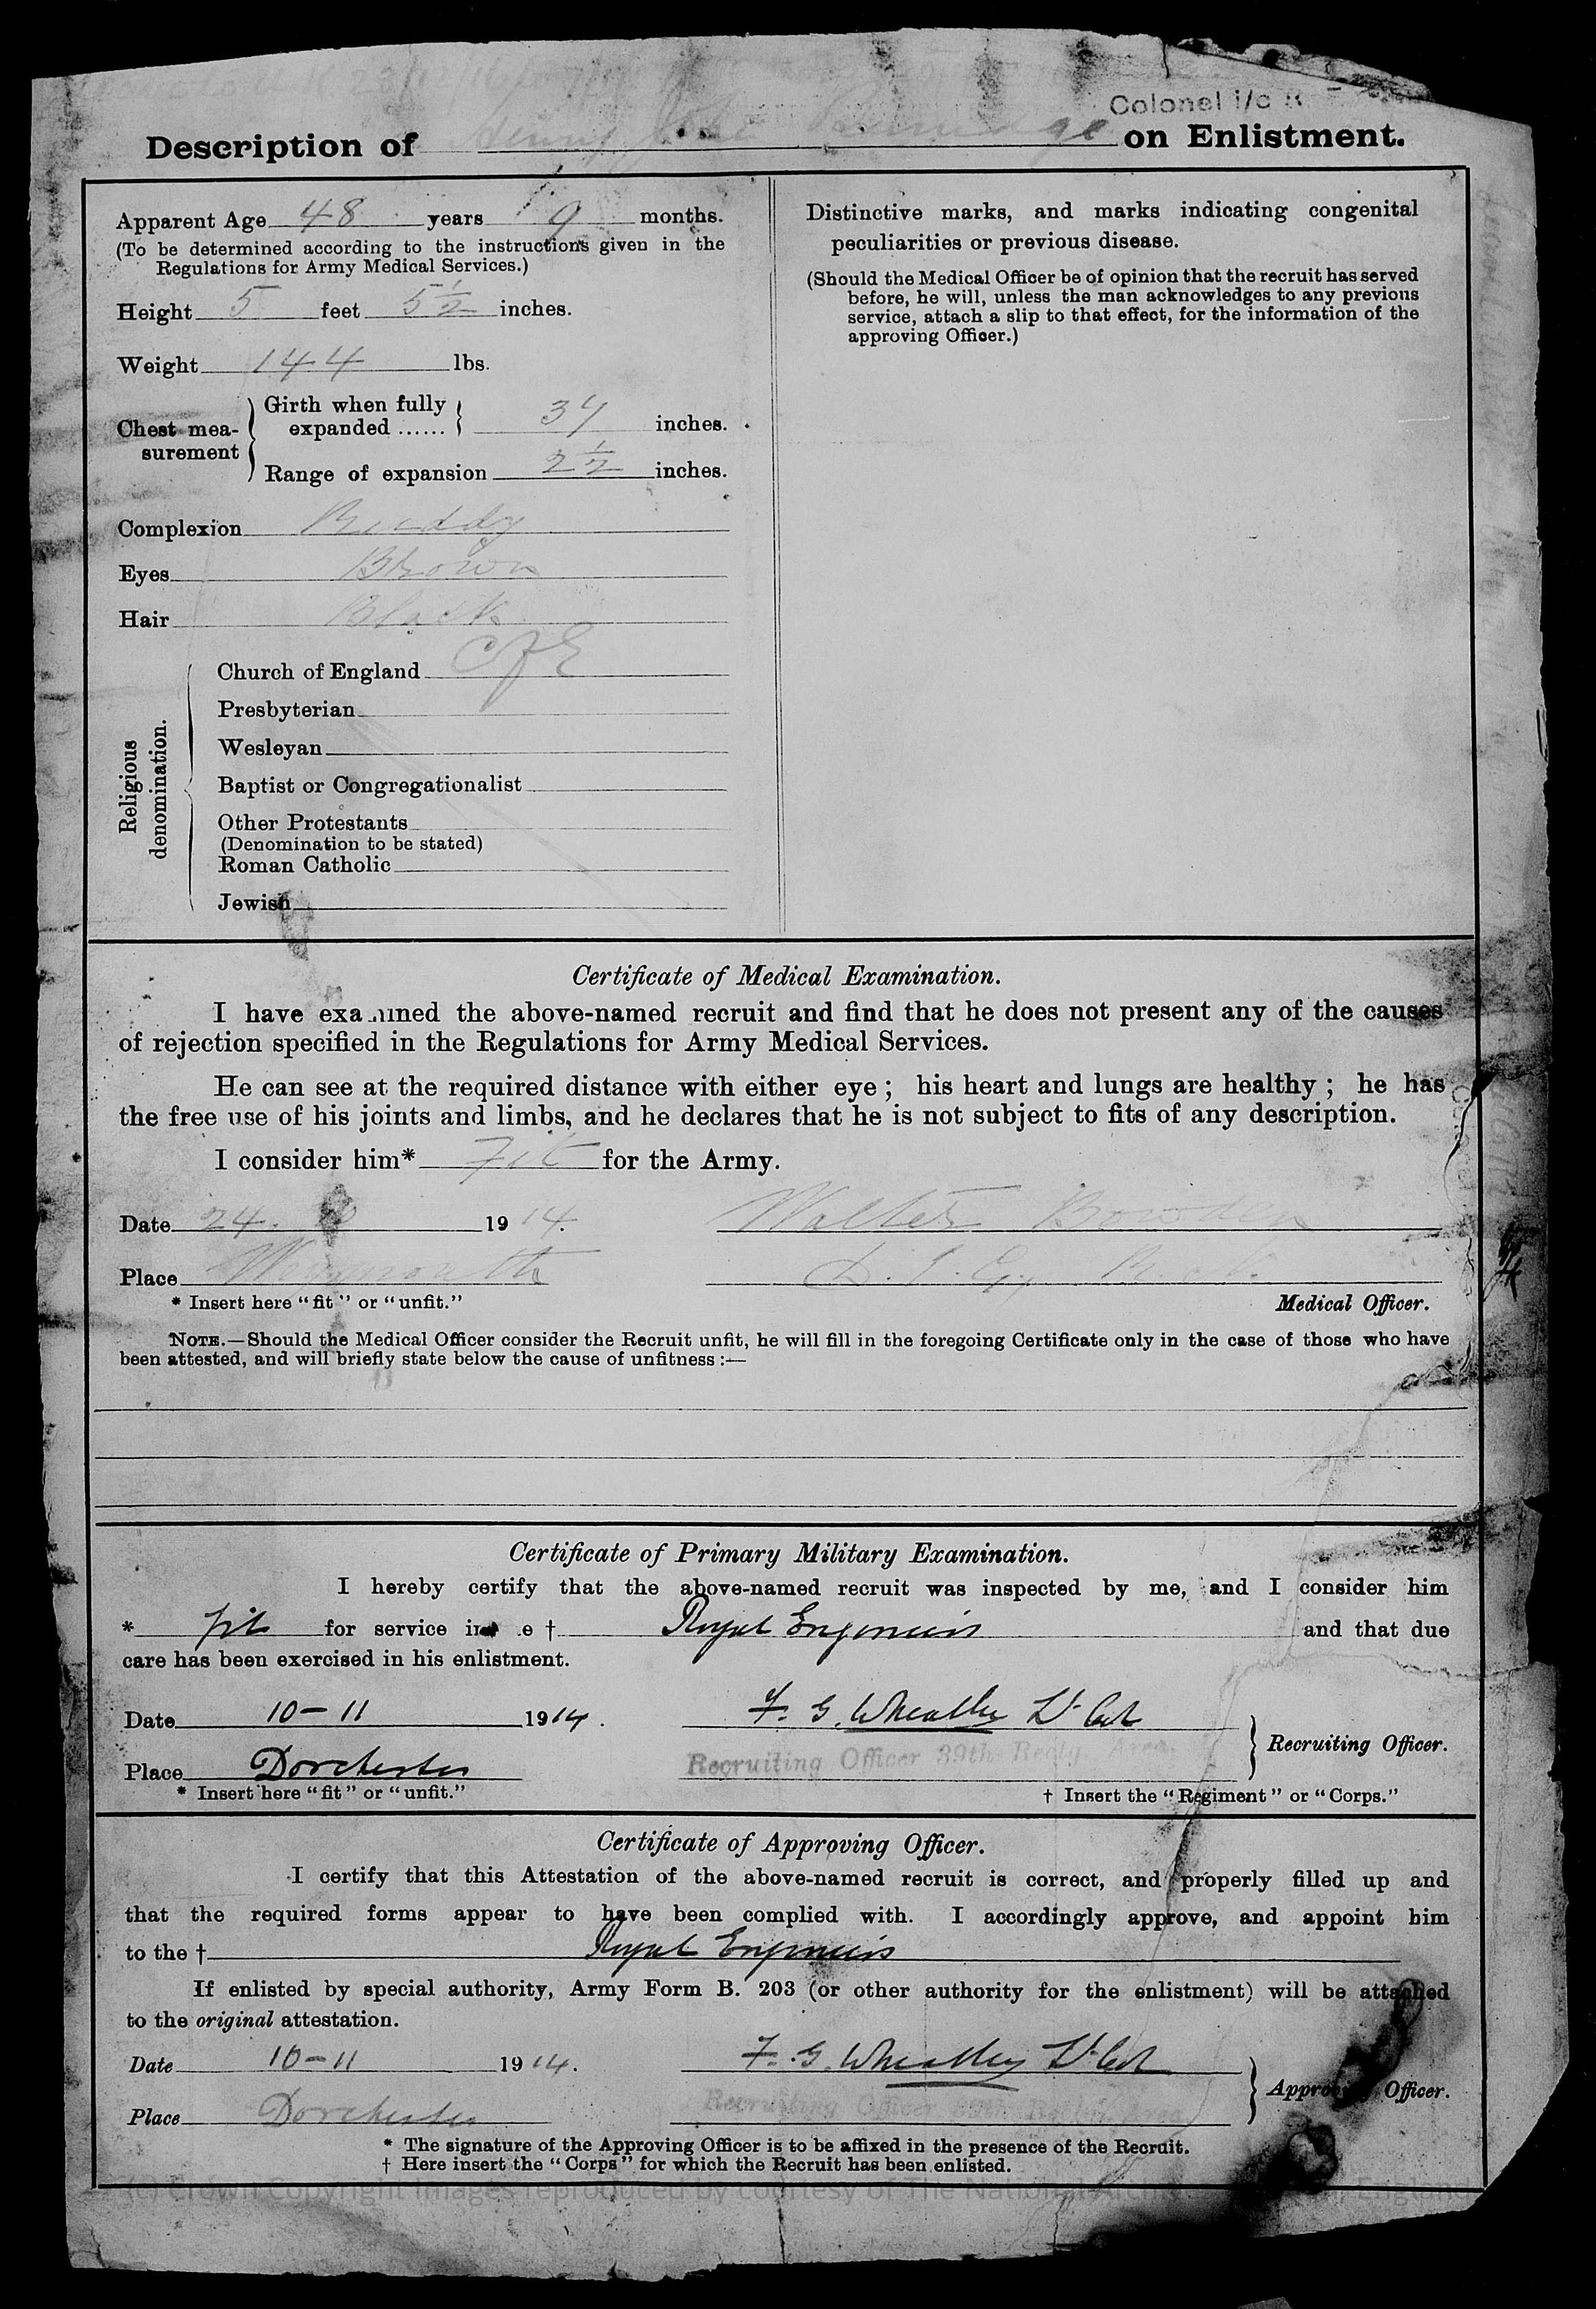 Colonel i/c R
Description of Henry on Enlistment.
Apparent Age 48 years 9 months.
(To be determined according to the instructions given in the
Regulations for Army Medical Services.)
Height 5 feet 5½ inches.
Weight 144 lbs.
Chest mea-
surement
Girth when fully
expanded ...... 37 inches.
Range of expansion 2½ inches.
Complexion Ruddy
Eyes Brown
Hair Black
Religious
denomination.
Church of England C of E
Presbyterian
Wesleyan
Baptist or Congregationalist
Other Protestants
(Denomination to be stated)
Roman Catholic
Jewish
Distinctive marks, and marks indicating congenital
peculiarities or previous disease.
(Should the Medical Officer be of opinion that the recruit has served
before, he will, unless the man acknowledges to any previous
service, attach a slip to that effect, for the information of the
approving Officer.)
Certificate of Medical Examination.
I have examined the above-named recruit and find that he does not present any of the causes
of rejection specified in the Regulations for Army Medical Services.
He can see at the required distance with either eye ; his heart and lungs are healthy ; he has
the free use of his joints and limbs, and he declares that he is not subject to fits of any description.
I consider him* Fit for the Army.
Date 24. 1914. Walter Bowden
Place Weymouth
* Insert here "fit" or "unfit." Medical Officer.
NOTE.—Should the Medical Officer consider the Recruit unfit, he will fill in the foregoing Certificate only in the case of those who have
been attested, and will briefly state below the cause of unfitness :—
Certificate of Primary Military Examination.
I hereby certify that the above-named recruit was inspected by me, and I consider him
* fit for service in the † Royal Engineers and that due
care has been exercised in his enlistment.
Date 10-11 1914. F. G. Wheatley Lt Col
Recruiting Officer 39th Recty. Area. Recruiting Officer.
Place Dorchester
* Insert here "fit" or "unfit." † Insert the "Regiment" or "Corps."
Certificate of Approving Officer.
I certify that this Attestation of the above-named recruit is correct, and properly filled up and
that the required forms appear to have been complied with. I accordingly approve, and appoint him
to the † Royal Engineers
If enlisted by special authority, Army Form B. 203 (or other authority for the enlistment) will be attached
to the original attestation.
Date 10-11 1914. F. G. Wheatley Lt Col
Recruiting Officer 39th Approving Officer.
Place Dorchester
* The signature of the Approving Officer is to be affixed in the presence of the Recruit.
† Here insert the "Corps" for which the Recruit has been enlisted.
(c) Crown Copyright Images reproduced by courtesy of The National Archives England